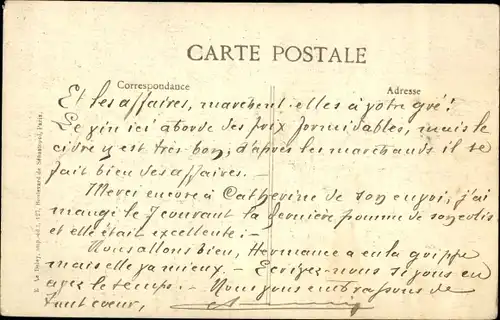 CARTE POSTALE
Correspondance
Adresse
Et les affaires, marchent-elles à votre gré!
Le vin ici aborde des prix formidables, mais le
cidre y est très bon, d'après les marchands il se
fait bien des affaires. -
Merci encore à Catherine de son envoi, j'ai
mangé le 7 courant la dernière pomme de son colis
et elle était excellente: -
Nous allons bien, Hermance a eu la grippe
mais elle va mieux. - Ecrivez-nous si vous en
avez le temps. - Nous vous embrassons de
tout coeur,
E. Le Deley, imp.-éd., 127, Boulevard de Sébastopol, Paris.